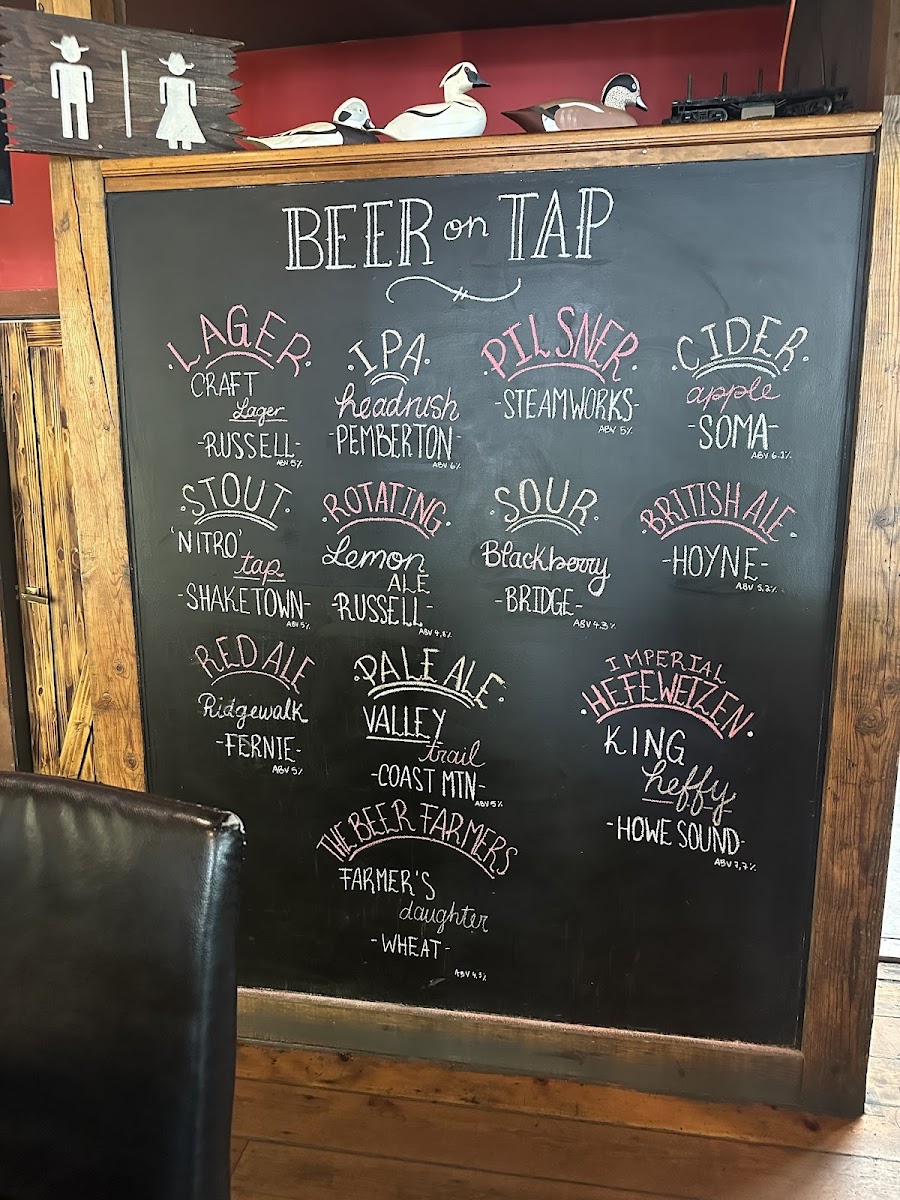 BEER on TAP
LAGER
CRAFT
Lager
-RUSSELL-
ABV 5%
IPA
headrush
-PEMBERTON-
ABV 6%
PILSNER
-STEAMWORKS-
ABV 5%
CIDER
apple
-SOMA-
ABV 6.1%
STOUT
'NITRO'
tap
-SHAKETOWN-
ABV 5%
ROTATING
Lemon
ALE
-RUSSELL-
ABV 4.8%
SOUR
Blackberry
-BRIDGE-
ABV 4.3%
BRITISH ALE
-HOYNE-
ABV 5.2%
RED ALE
Ridgewalk
-FERNIE-
ABV 5%
PALE ALE
VALLEY
trail
-COAST MTN-
ABV 5%
IMPERIAL
HEFEWEIZEN
KING
heffy
-HOWE SOUND-
ABV 7,7%
THE BEER FARMERS
FARMER'S
daughter
-WHEAT-
ABV 4,5%